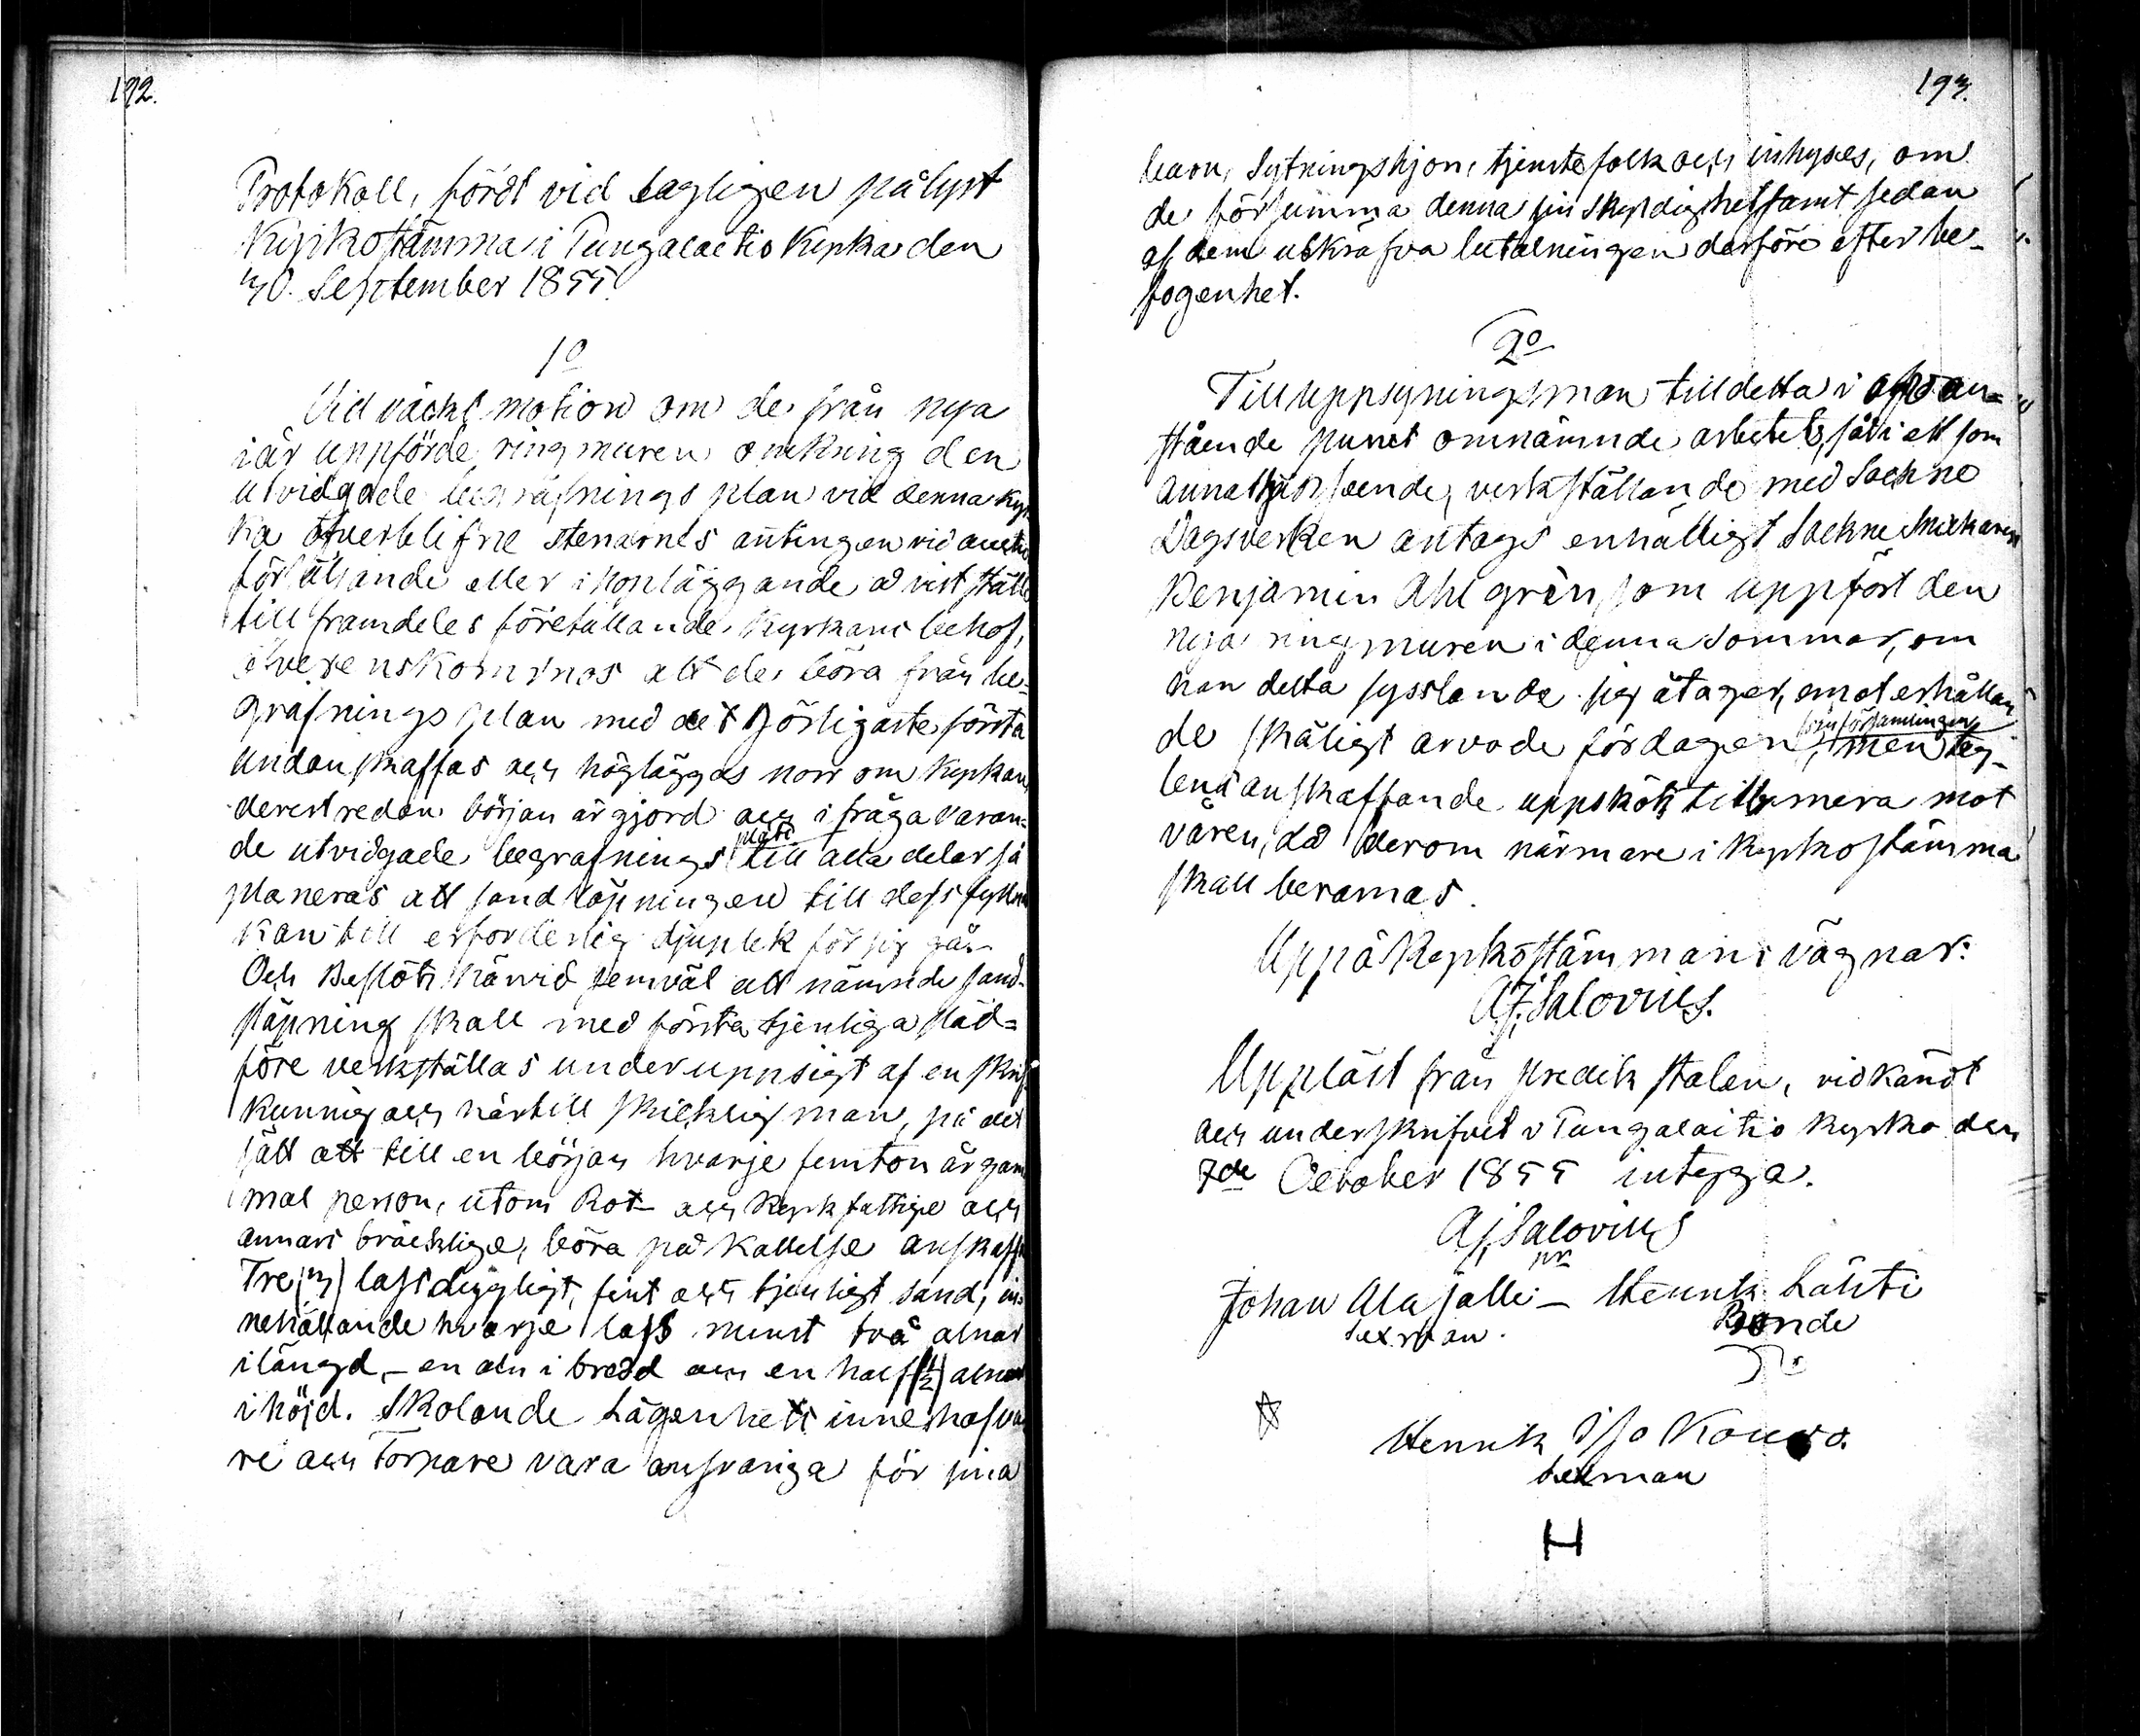 192.
Protokoll, fördt vid lagligen pålyst
Kyrkostämma i Pungalaitio Kyrka den
30. September 1855.
1o
Vid väckt motion om de från nya
i år uppförde ringmuren omkring den
utvidgade begrafningsplan vid denna kyr
ka öfverblifne stenarnes antingen vid auction
försäljande eller ihopläggande å visst ställe
till framdeles företällande Kyrkans behof,
öfverenskommos att de böra från be-
grafningsplan med det görligaste första
undanskaffas och högläggas norr om Kyrkan,
derest redan början är gjord och i fråga varan-
de utvidgade begrafnings plats till alla delar så
planeras att sand släpningen till dess fyllna
kan till erforderlig djuplek för sig gå.
Och Beslöts härvid jemväl att nämnde sand-
släpning skall med första tjenliga släd-
före verkställas under uppsigt af en skrif
kunnig och härtill skicklig man, på det
sätt att till en början hvarje femton år gam
mal person, utom Rot- och Kyrkfattige och
annars bräcklige, böra på kallelse anskaffa
Tre (3) lass dugligt, fint och tjenligt sand, in-
nehållande hvarje lass minst två alnar
i längd, – en aln i bredd och en half (1/2) alnar
i höjd. Skolande Lägenhets innehafva
re och Torpare vara ansvariga för sina
193.
barn, Sytningshjon, tjenstefolk och inhyses, om
de försumma denna sin skyldighet samt sedan
af dem utkräfva betalningen derföre efter be-
fogenhet.
2o
Till uppsyningsman till detta i ofvan-
stående punct omnämnde arbetet, så i ett som
annat hänseende, verkställande med Sockne
Dagsverken antogs enhälligt Sockne Muraren
Benjamin Ahlgrèn, som uppfört den
nya ringmuren i denna sommar, om
han detta sysslande sig åtager, emot erhållan
de skäligt arvode för dagen, af församlingen, men teg-
lens anskaffande uppsköts tillsmera mot
våren, då derom närmare i Kyrkostämma
skall beramas.
Uppå Kyrkostämmans vägnar:
A. J. Salovius.
Uppläst från predikstolen, vidkändt
och underskrifvet i Pungalaitio kyrka den
7de October 1855 intyga.
A J Salovius
pr
Johan Alajalli – Henrik Lähti
Sexman. Bonde
Henrik Iso Kouvo.
Sexman
H